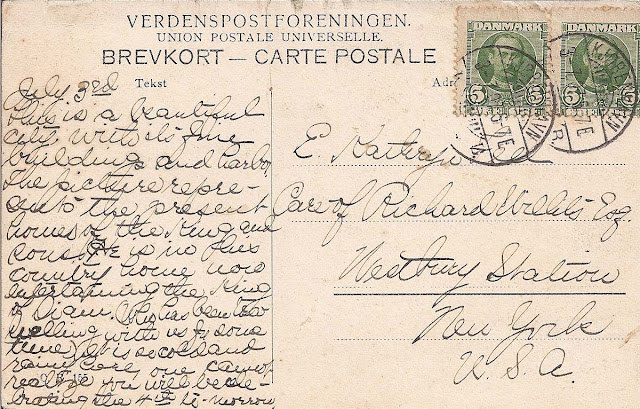 VERDENSPOSTFORENINGEN.
UNION POSTALE UNIVERSELLE.
BREVKORT — CARTE POSTALE
Tekst
Adr
DANMARK
5
5
DANMARK
5
July 3rd
This is a beautiful
city with its fine
building and harbor
The picture repre-
sents the present
homes of the King and
He is in his
country home now
entertaining the King
of Siam. Who has been
with us for some
time) It is so cold and
rainy here one can not
realize you will be cele-
brating the 4th to-morrow
E. Kathryn
Care of Richard Willits Esq
Westbury Station
New York
U.S.A.